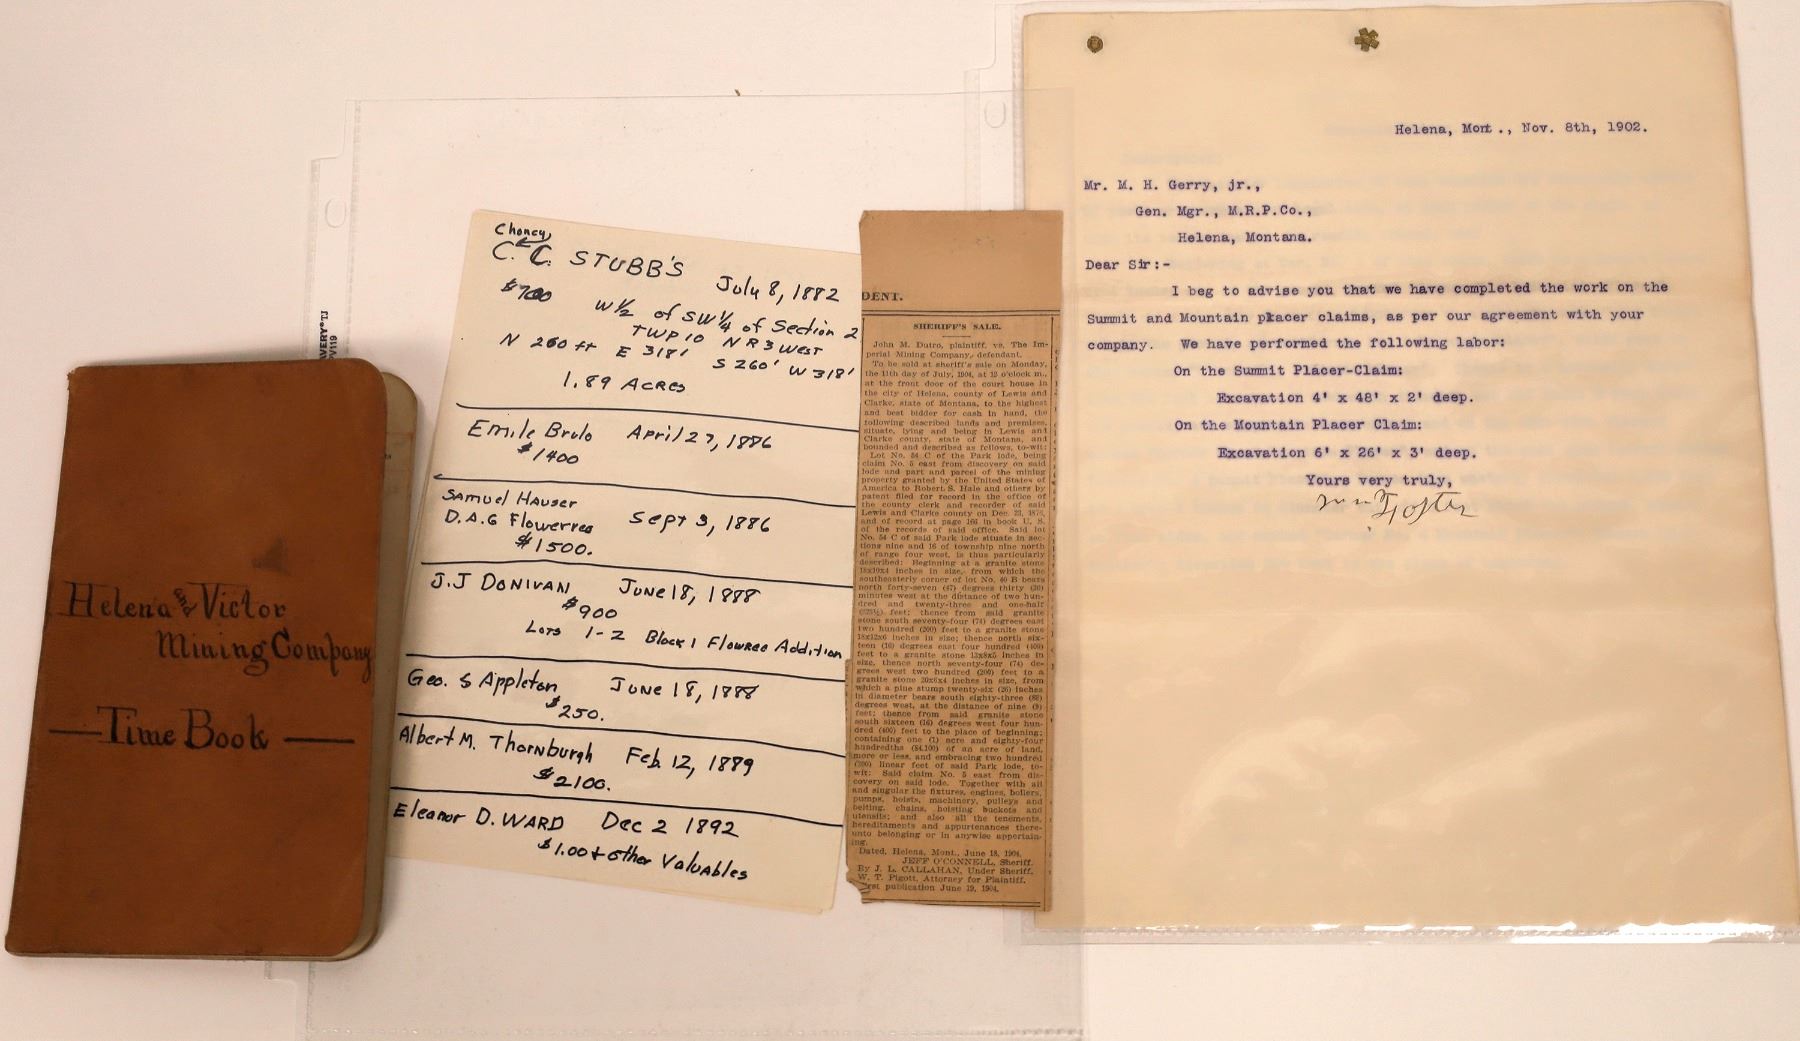 Helena and Victor
Mining Company
Time Book
AVERY®
Choncy
C. C. STUBB'S
July 8, 1882
$700
W 1/2 of SW 1/4 of Section 2
TWP 10 N R 3 West
N 260 ft E 318' S 260' W 318'
1.89 Acres
Emile Brulo April 27, 1886
$1400
Samuel Hauser
D.A.G Flowerree Sept 3, 1886
$1500.
J.J DONIVAN June 18, 1888
$900
Lots 1-2 Block 1 Flowree Addition
Geo. S Appleton June 18, 1888
$250.
Albert M. Thornburgh Feb. 12, 1889
$2100.
Eleanor D. WARD Dec 2 1892
$1.00 + other Valuables
DENT.
SHERIFF'S SALE.
John M. Dutro, plaintiff, vs. The Im-
perial Mining Company, defendant.
To be sold at sheriff's sale on Monday,
the 11th day of July, 1904, at 12 o'clock m.,
at the front door of the court house in
the city of Helena, county of Lewis and
Clarke, state of Montana, to the highest
and best bidder for cash in hand, the
following described lands and premises,
situate, lying and being in Lewis and
Clarke county, state of Montana, and
bounded and described as follows, to-wit:
Lot No. 54 C of the Park lode, being
claim No. 5 east from discovery on said
lode and part and parcel of the mining
property granted by the United States of
America to Robert S. Hale and others by
patent filed for record in the office of
the county clerk and recorder of said
Lewis and Clarke county on Dec. 23,
and of record at page 166 in book U. S.
of the records of said office. Said lot
No. 54 C of said Park lode situate in sec-
tions nine and 16 of township nine north
of range four west, is thus particularly
described: Beginning at a granite stone
18x10x4 inches in size, from which the
southeasterly corner of lot No. 40 B bears
north forty-seven (47) degrees thirty (30)
minutes west at the distance of two hun-
dred and twenty-three and one-half
(223½) feet; thence from said granite
stone south seventy-four (74) degrees east
two hundred (200) feet to a granite stone
18x12x6 inches in size; thence north six-
teen (16) degrees east four hundred (400)
feet to a granite stone 13x8x5 inches in
size, thence north seventy-four (74) de-
grees west two hundred (200) feet to a
granite stone 20x6x4 inches in size, from
which a pine stump twenty-six (26) inches
in diameter bears south eighty-three (83)
degrees west, at the distance of nine (9)
feet; thence from said granite stone
south sixteen (16) degrees west four hun-
dred (400) feet to the place of beginning;
containing one (1) acre and eighty-four
hundredths (84.100) of an acre of land,
more or less, and embracing two hundred
(200) linear feet of said Park lode, to-
wit: Said claim No. 5 east from dis-
covery on said lode. Together with all
and singular the fixtures, engines, boilers,
pumps, hoists, machinery, pulleys and
belting, chains, hoisting buckets and
utensils; and also all the tenements,
hereditaments and appurtenances there-
unto belonging or in anywise appertain-
ing.
Dated, Helena, Mont., June 18, 1904.
JEFF O'CONNELL, Sheriff.
By J. L. CALLAHAN, Under Sheriff.
W. T. Pigott, Attorney for Plaintiff.
First publication June 19, 1904.
Helena, Mont., Nov. 8th, 1902.
Mr. M. H. Gerry, jr.,
Gen. Mgr., M.R.P.Co.,
Helena, Montana.
Dear Sir:-
I beg to advise you that we have completed the work on the
Summit and Mountain placer claims, as per our agreement with your
company. We have performed the following labor:
On the Summit Placer-Claim:
Excavation 4' x 48' x 2' deep.
On the Mountain Placer Claim:
Excavation 6' x 26' x 3' deep.
Yours very truly,
Wm Foster